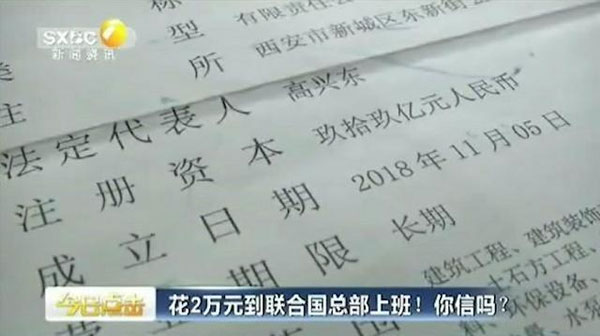 SXBC
新闻资讯
型 有限责任公
所 西安市新城区东新街
法定代表人 高兴东
注册资本 玖拾玖亿元人民币
成立日期 2018年11月05日
期限 长期
建筑工程、建筑装饰
土石方工程、
环保设备、
今日点击
花2万元到联合国总部上班！你信吗？